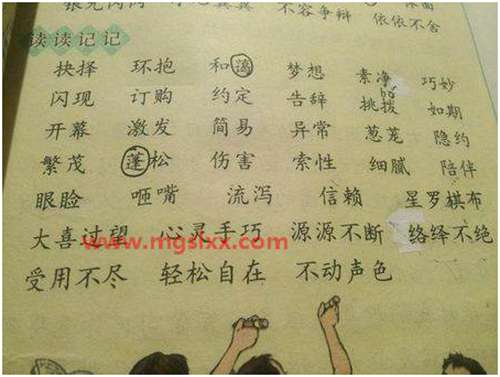 不容争辩 依依不舍
读读记记
抉择 环抱 和蔼 梦想 素净 巧妙
闪现 订购 约定 告辞 挑拨 如期
开幕 激发 简易 异常 葱茏 隐约
繁茂 蓬松 伤害 索性 细腻 陪伴
眼脸 咂嘴 流泻 信赖 星罗棋布
大喜过望 心灵手巧 源源不断 络绎不绝
www.mgslxx.com
受用不尽 轻松自在 不动声色